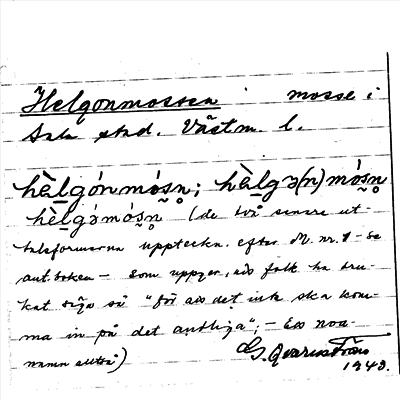 Helgonmossen mosse i
Sala stad. Västm. l.
hè̱lgón mós̰n̥; hè̱lgə(n) mós̰n̥
hè̱lgə́mós̰n̥ (de två senare ut-
talsformerna uppteckn. efter M. nr. 1 - se
ant. boken - som uppger, att folk ha bru-
kat säga så "för att det inte ska kom-
ma in på det andliga"; -
namn alltså)
G.
1943.